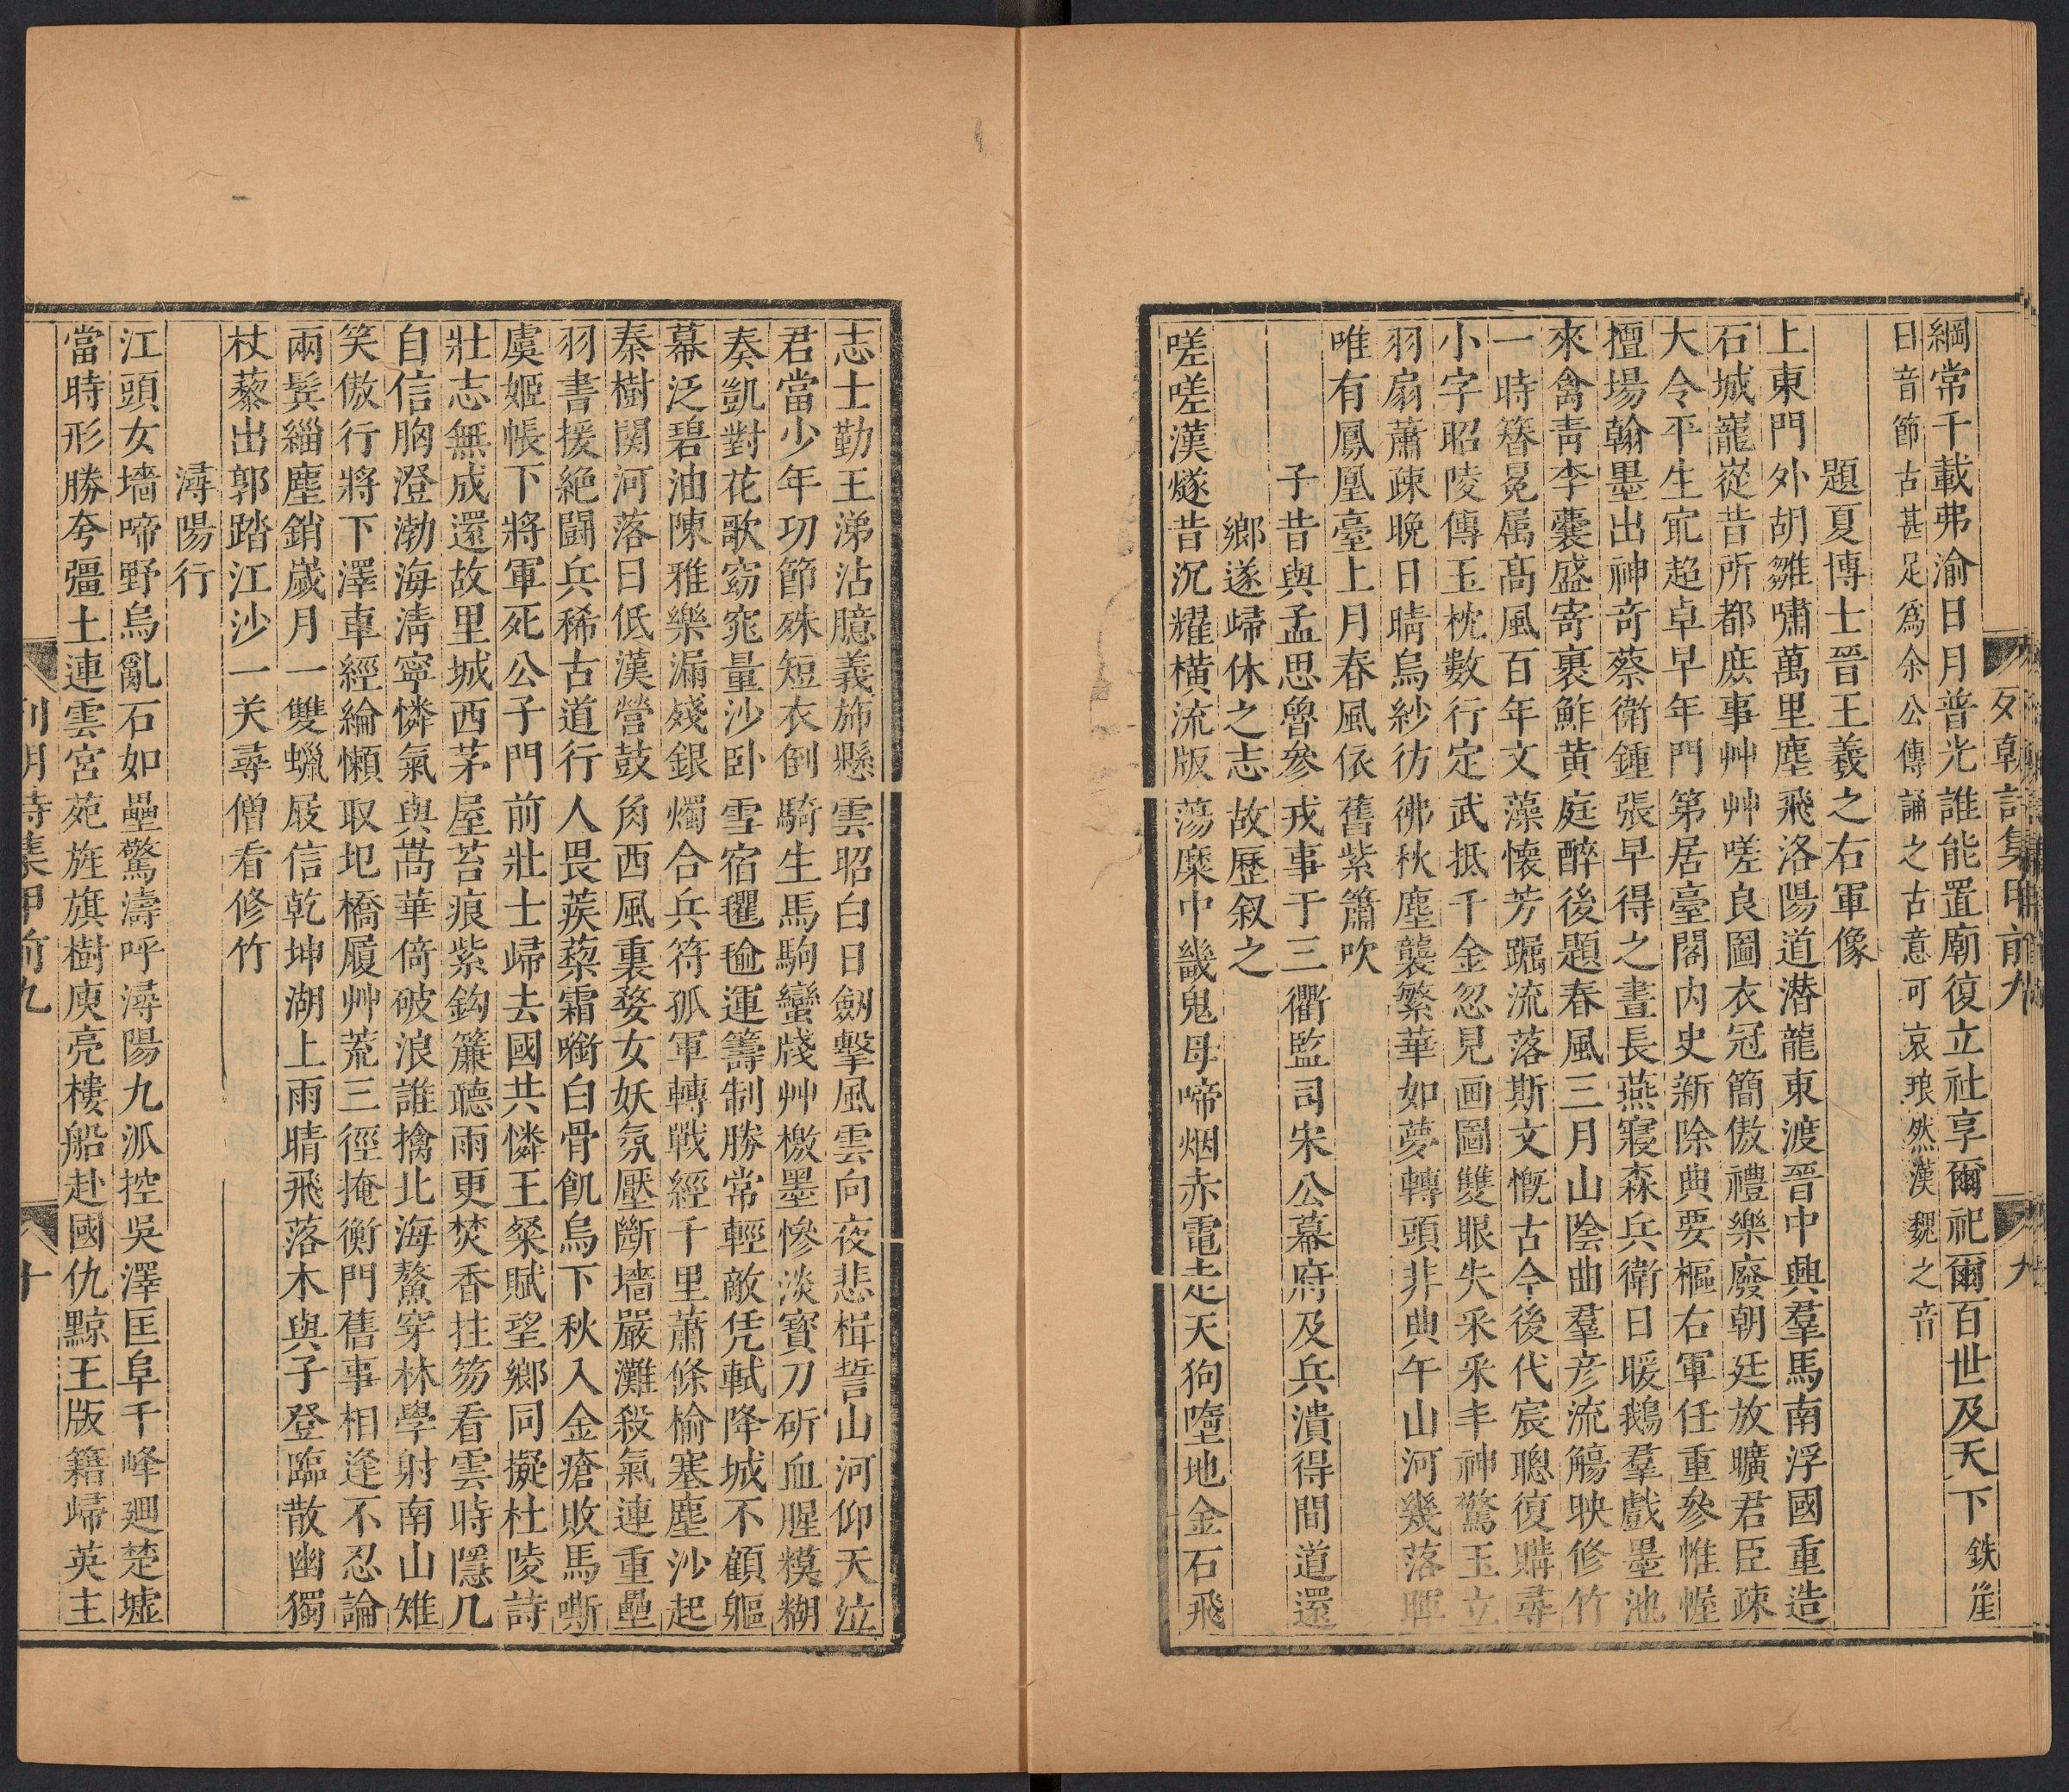 列朝詩集甲前九
九
綱常千載弗渝日月普光誰能置廟復立社享爾祀爾百世及天下鉄崖
曰音節古甚足爲余公傳誦之古意可哀琅然漢魏之音
題夏博士晉王羲之右軍像
上東門外胡雛嘯萬里塵飛洛陽道潛龍東渡晉中興羣馬南浮國重造
石城巃嵸昔所都庶事艸艸嗟良圖衣冠簡傲禮樂廢朝廷放曠君臣疎
大令平生㝡超卓早年門第居臺閣内史新除典要樞右軍任重參惟幄
擅場翰墨出神奇蔡衛鍾張早得之晝長燕寢森兵衛日暖鵝羣戲墨池
來禽靑李囊盛寄裹鮓黄庭醉後題春風三月山陰曲羣彦流觴映修竹
一時簪冕属髙風百年文藻懷芳躅流落斯文慨古今後代宸聰復購尋
小字昭陵傳玉枕數行定武抵千金忽見画圖雙眼失采采丰神驚玉立
羽扇蕭疎晚日晴烏紗彷彿秋塵襲繁華如夢轉頭非典午山河幾落暉
唯有鳳凰臺上月春風依舊紫簫吹
子昔與孟思魯參戎事于三衢監司宋公幕府及兵潰得間道還
鄉遂歸休之志故歷叙之
嗟嗟漢燧昔沉耀横流版蕩糜中畿鬼母啼烟赤電走天狗墮地金石飛
志士勤王涕沾臆義斾懸雲昭白日劔擊風雲向夜悲楫誓山河仰天泣
君當少年㓛節殊短衣倒騎生馬駒蠻牋艸檄墨慘淡寳刀斫血腥模糊
奏凱對花歌窈窕量沙卧雪宿氍毹運籌制勝常輕敵凭軾降城不顧軀
幕泛碧油陳雅樂漏殘銀燭合兵符孤軍轉戰經千里蕭條榆塞塵沙起
秦樹関河落日低漢營鼓角西風裏婺女妖氛壓斷墻嚴灘殺氣連重壘
羽書援絶鬪兵稀古道行人畏蒺藜霜㗸白骨飢烏下秋入金瘡敗馬嘶
虞姬帳下將軍死公子門前壯士歸去國共憐王粲賦望鄉同擬杜陵詩
壯志無成還故里城西茅屋苔痕紫鈎簾聽雨更焚香拄笏看雲時隱几
自信胸澄渤海淸寧憐氣與嵩華倚破浪誰擒北海鰲穿林學射南山雉
笑傲行將下澤車經綸懶取圯橋履艸荒三徑掩衡門舊事相逢不忍論
兩鬂緇塵銷歲月一雙蠟屐信乾坤湖上雨晴飛落木與子登臨散幽獨
杖藜出郭踏江沙一关尋僧看修竹
潯陽行
江頭女墻啼野烏亂石如壘驚濤呼潯陽九派控吳澤匡阜千峰𢌞楚墟
當時形勝夸彊土連雲宮苑旌旗樹庾亮樓船赴國仇黥王版籍歸英主
列朝詩集甲前九
十